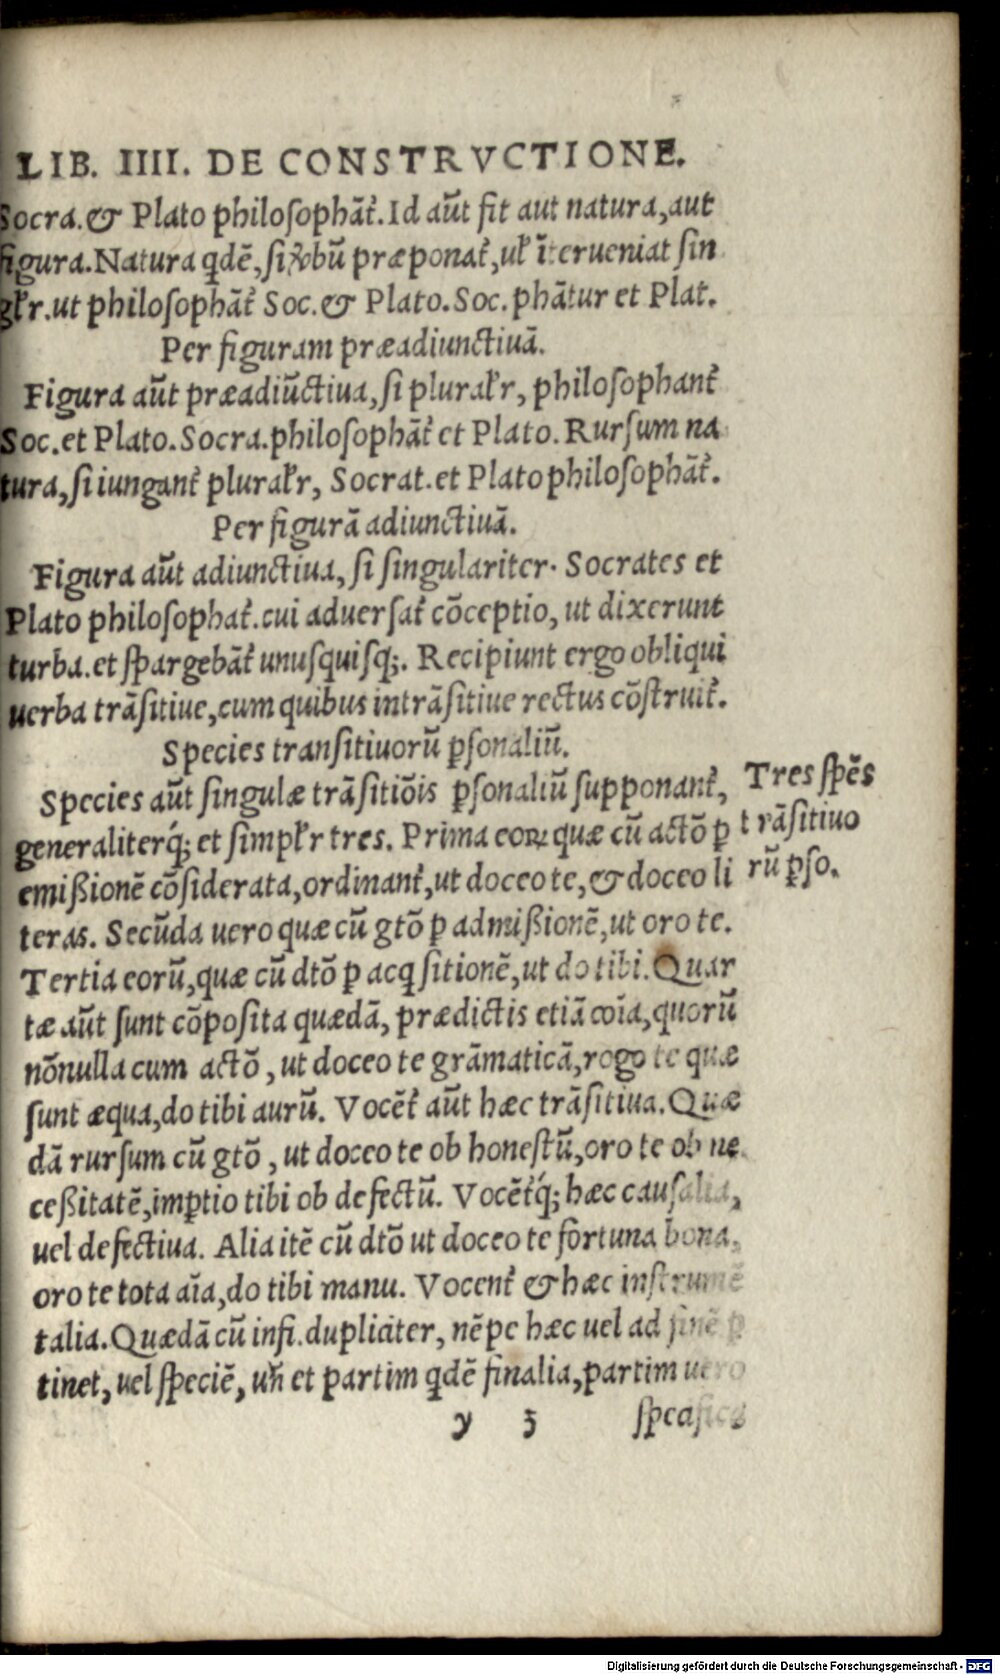 LIB. IIII. DE CONSTRVCTIONE.
Socra.& Plato philosophāt᷑.Id aūt fit aut natura,aut
figura.Natura qdē,si ꝟbū præponat᷑,ul̕ īterueniat sin
gl̕r.ut philosophāt᷑ Soc.& Plato.Soc.phātur et Plat.
Per figuram præadiunctiuā.
Figura aūt præadiūctiua,si plural̕r, philosophant᷑
Soc.et Plato.Socra.philosophāt᷑ et Plato.Rursum na
tura,si iungant᷑ plural̕r, Socrat.et Plato philosophāt᷑.
Per figurā adiunctiuā.
Figura aūt adiunctiua, si singulariter. Socrates et
Plato philosophat᷑.cui aduersat᷑ cōceptio, ut dixerunt
turba.et spargebāt᷑ unusquisq;. Recipiunt ergo obliqui
uerba trāsitiue,cum quibus intrāsitiue rectus cōstruit᷑.
Species transitiuorū ꝑsonaliū.
Species aūt singulæ trāsitiōis ꝑsonaliū supponant᷑,
generaliterq́; et simpl̕r tres. Prima eoꝝ quæ cū actō ꝑ
emißionē cōsiderata,ordinant᷑,ut doceo te,& doceo li
teras. Secūda uero quæ cū gtō ꝑ admißionē,ut oro te.
Tertia eorū,quæ cū dtō ꝑ acqsitionē,ut do tibi.Quar
tæ aūt sunt cōposita quædā, prædictis etiā oīa,quorū
nōnulla cum actō, ut doceo te grāmaticā,rogo te quæ
sunt æqua,do tibi aurū. Vocēt᷑ aūt hæc trāsitiua.Quæ
dā rursum cū gtō, ut doceo te ob honestū,oro te ob ne
ceßitatē,imꝑtio tibi ob defectū. Vocēt᷑q́; hæc causalia,
uel defectiua. Alia itē cū dtō ut doceo te fortuna bona,
oro te tota aīa,do tibi manu. Vocent᷑ & hæc instrumē
talia.Quædā cū infi.dupliciter, nēpe hæc uel ad finē ꝑ
tinet, uel speciē, uñ et partim qdē finalia,partim uero
y 3 specifica
Tres spēs
trāsitiuo
rū ꝑso.
Digitalisierung gefördert durch die Deutsche Forschungsgemeinschaft - DFG